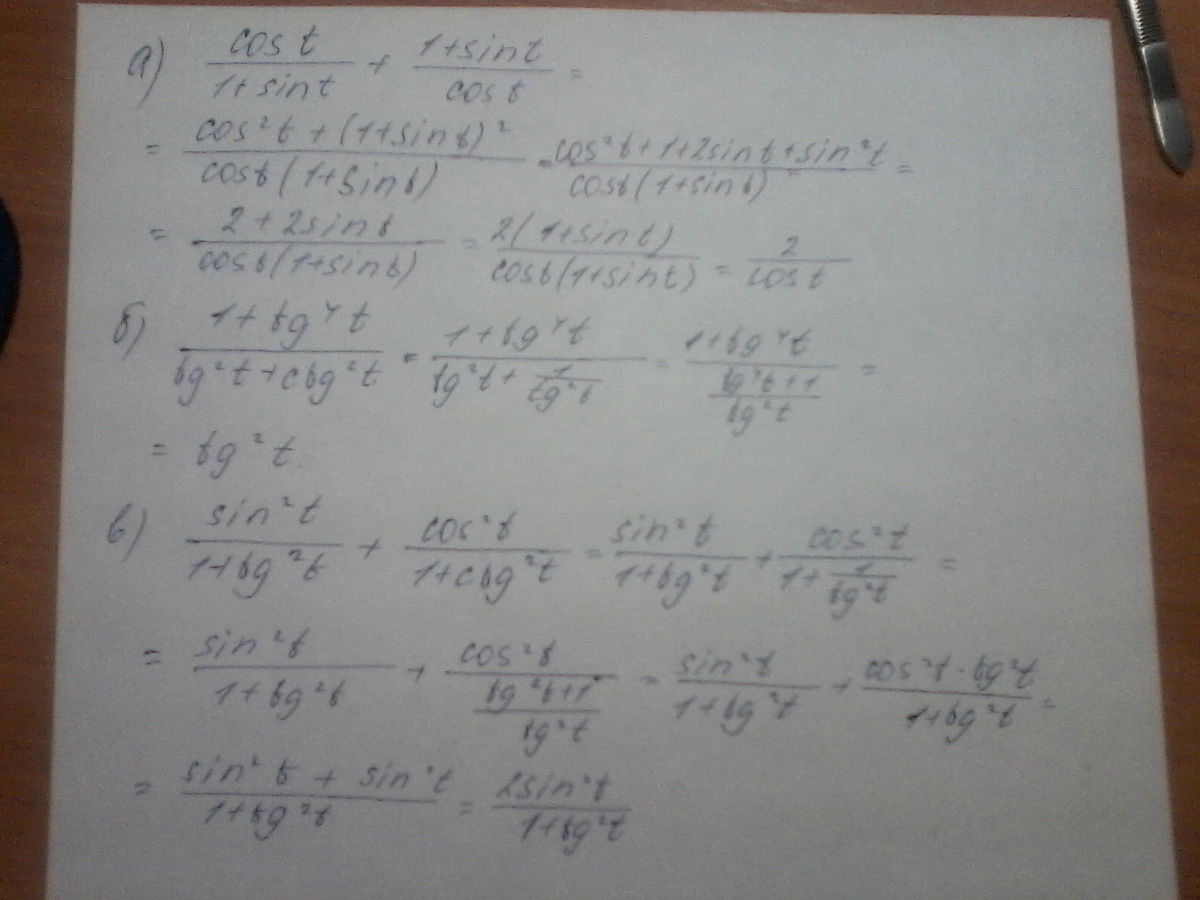 а) cos t / 1+sin t + 1+sin t / cos t =
= cos²t + (1+sin t)² / cos t (1+sin t) = cos²t + 1 + 2sin t + sin²t / cos t (1+sin t) =
= 2 + 2sin t / cos t (1+sin t) = 2(1+sin t) / cos t (1+sin t) = 2 / cos t
б) 1 + tg⁴t / tg²t + ctg²t = 1 + tg⁴t / tg²t + 1/tg²t = 1 + tg⁴t / tg⁴t + 1 / tg²t =
= tg²t
в) sin²t / 1+tg²t + cos²t / 1+ctg²t = sin²t / 1+tg²t + cos²t / 1 + 1/tg²t =
= sin²t / 1+tg²t + cos²t / tg²t+1 / tg²t = sin²t / 1+tg²t + cos²t · tg²t / 1+tg²t =
= sin²t + sin²t / 1+tg²t = 2sin²t / 1+tg²t